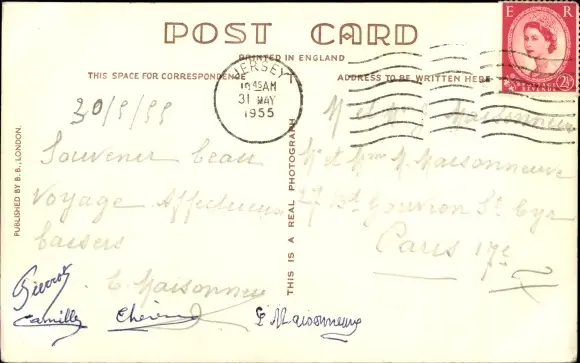 POST CARD
PRINTED IN ENGLAND
THIS SPACE FOR CORRESPONDENCE
ADDRESS TO BE WRITTEN HERE
E R
POSTAGE REVENUE
2½ D
JERSEY
10 45 AM
31 MAY
1955
PUBLISHED BY B.B., LONDON.
THIS IS A REAL PHOTOGRAPH
30/5/55
Souvenir beau
Voyage Affectueux
baisers
E. Maisonneuve
Pierrot
Camille
E Maisonneuve
M et Maisonneuve
Mr et Mme M. Maisonneuve
27 Bd Gouvion St Cyr
Paris 17e